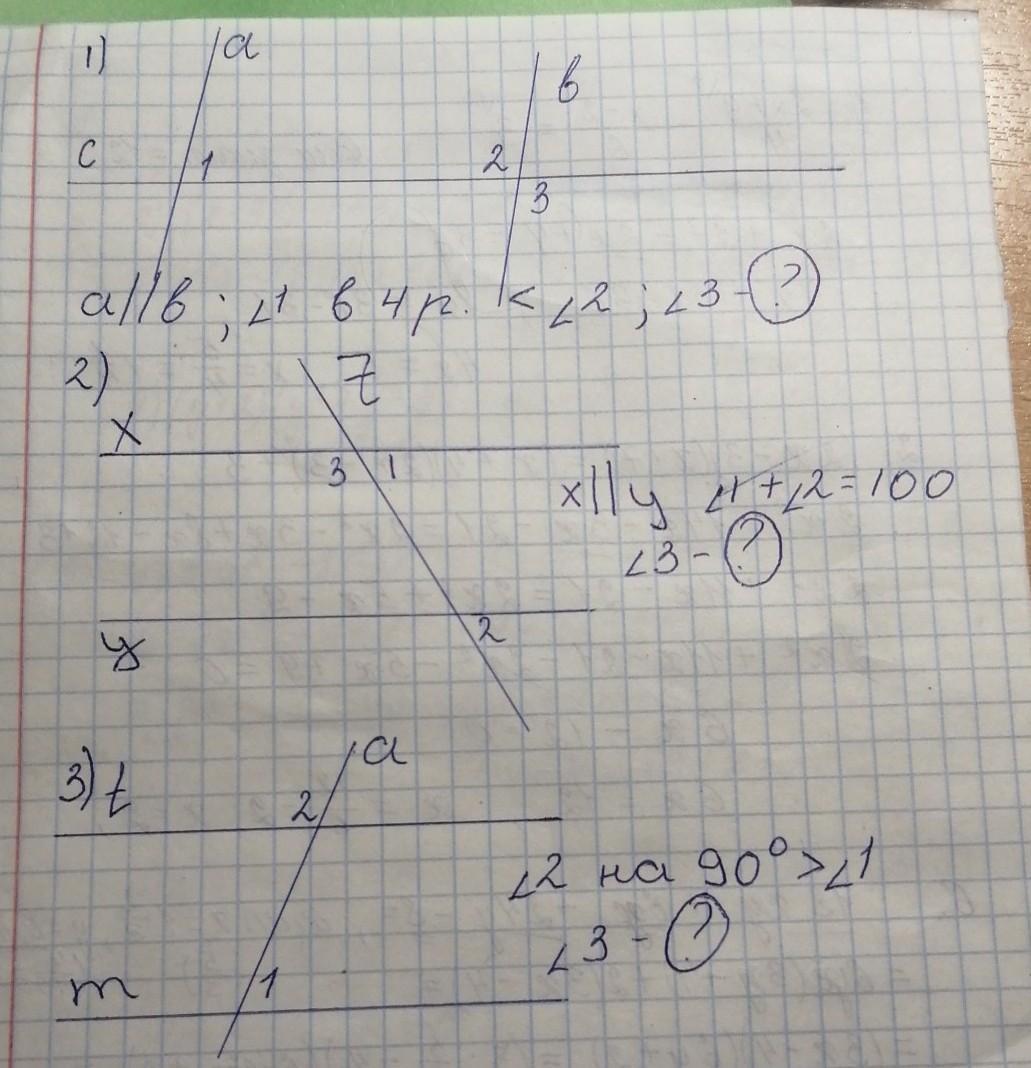 1)
a
в
c
1
2
3
a||в ; ∠1 в 4 р. < ∠2 ; ∠3 - ?
2)
z
x
3 1
x||y ∠1+∠2=100
∠3 - ?
y
2
3) t
a
2
∠2 на 90° > ∠1
∠3 - ?
m
1